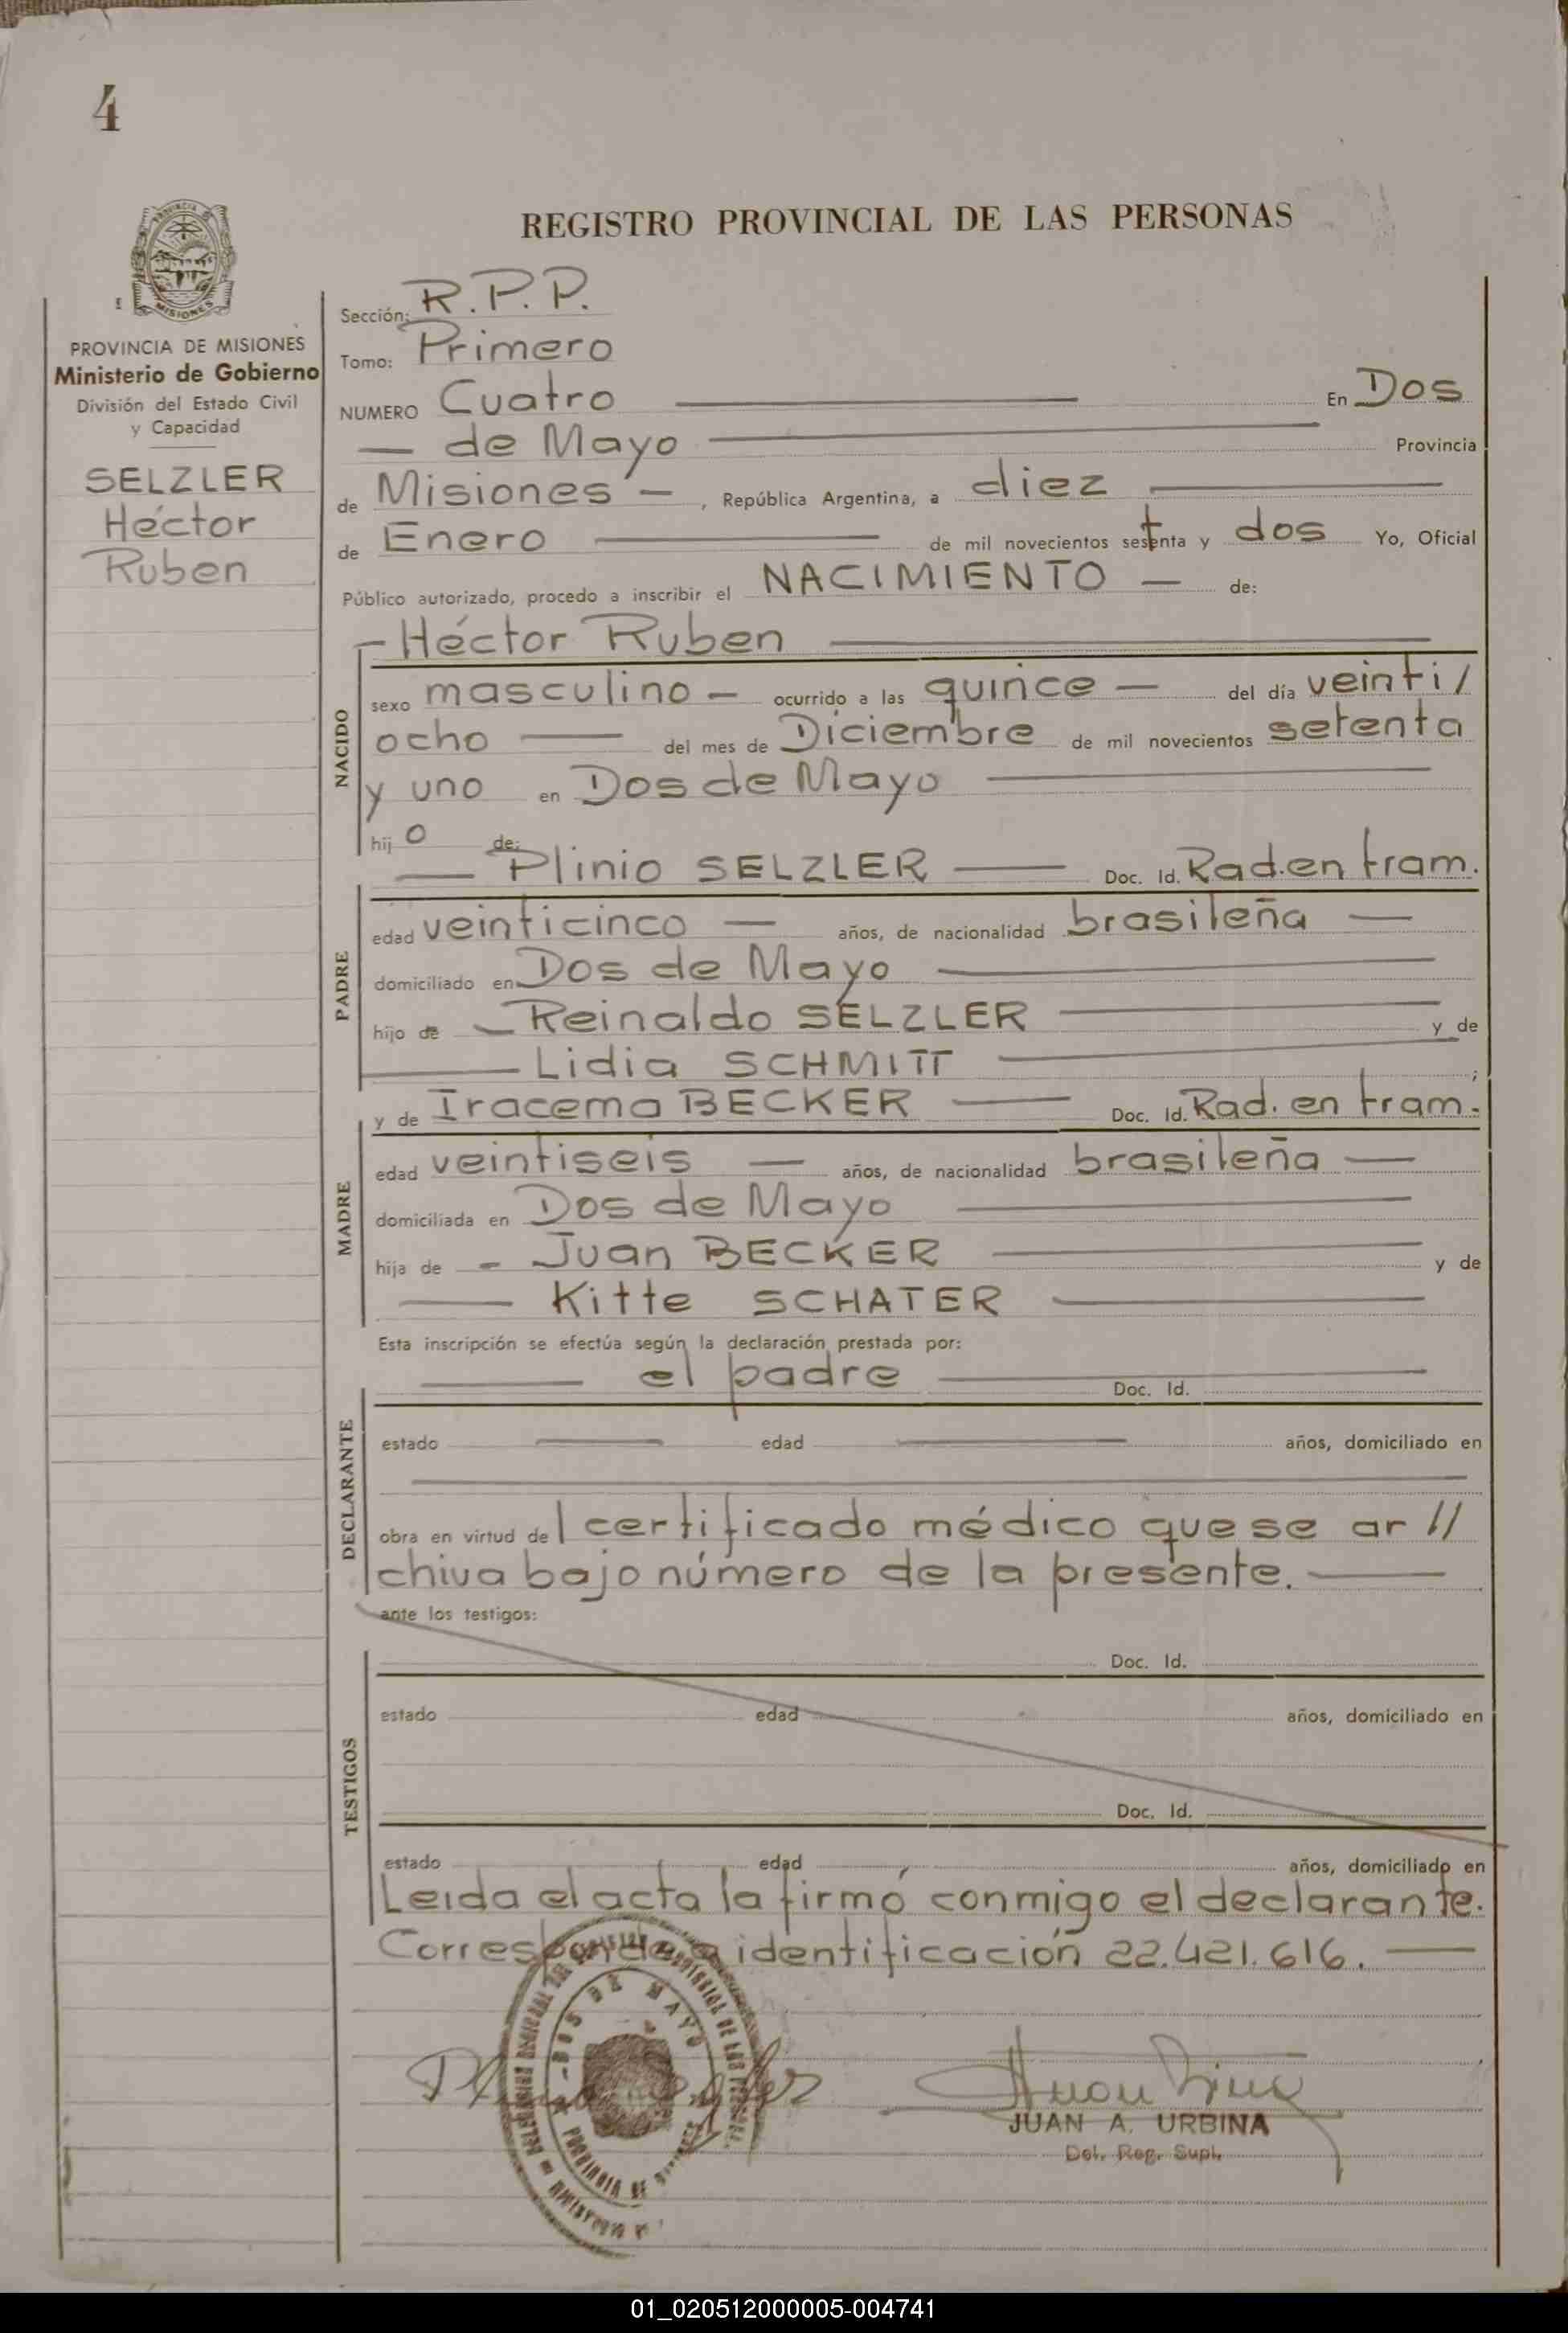 4
REGISTRO PROVINCIAL DE LAS PERSONAS
MISIONES
PROVINCIA DE MISIONES
Ministerio de Gobierno
División del Estado Civil
y Capacidad
SELZLER
Héctor
Ruben
Sección: R.P.P.
Tomo: Primero
NUMERO Cuatro En Dos
de Mayo Provincia
de Misiones, República Argentina, a diez
de Enero de mil novecientos setenta y dos Yo, Oficial
Público autorizado, procedo a inscribir el NACIMIENTO de:
Héctor Ruben
NACIDO
sexo masculino ocurrido a las quince del día veinti/
ocho del mes de Diciembre de mil novecientos setenta
y uno en Dos de Mayo
hijo de:
Plinio SELZLER Doc. Id. Rad. en tram.
PADRE
edad veinticinco años, de nacionalidad brasileña
domiciliado en Dos de Mayo
hijo de Reinaldo SELZLER y de
Lidia SCHMITT ;
y de Iracema BECKER Doc. Id. Rad. en tram.
MADRE
edad veintiseis años, de nacionalidad brasileña
domiciliada en Dos de Mayo
hija de - Juan BECKER y de
Kitte SCHATER
Esta inscripción se efectúa según la declaración prestada por:
el padre Doc. Id.
DECLARANTE
estado edad años, domiciliado en
obra en virtud del certificado médico que se ar //
chiva bajo número de la presente.
ante los testigos:
Doc. Id.
TESTIGOS
estado edad años, domiciliado en
Doc. Id.
estado edad años, domiciliado en
Leida el acta la firmó conmigo el declarante.
Corresponde a identificación 22.421.616.
DOS DE MAYO
PROVINCIA DE
JUAN A. URBINA
Del. Reg. Supl.
01_020512000005-004741